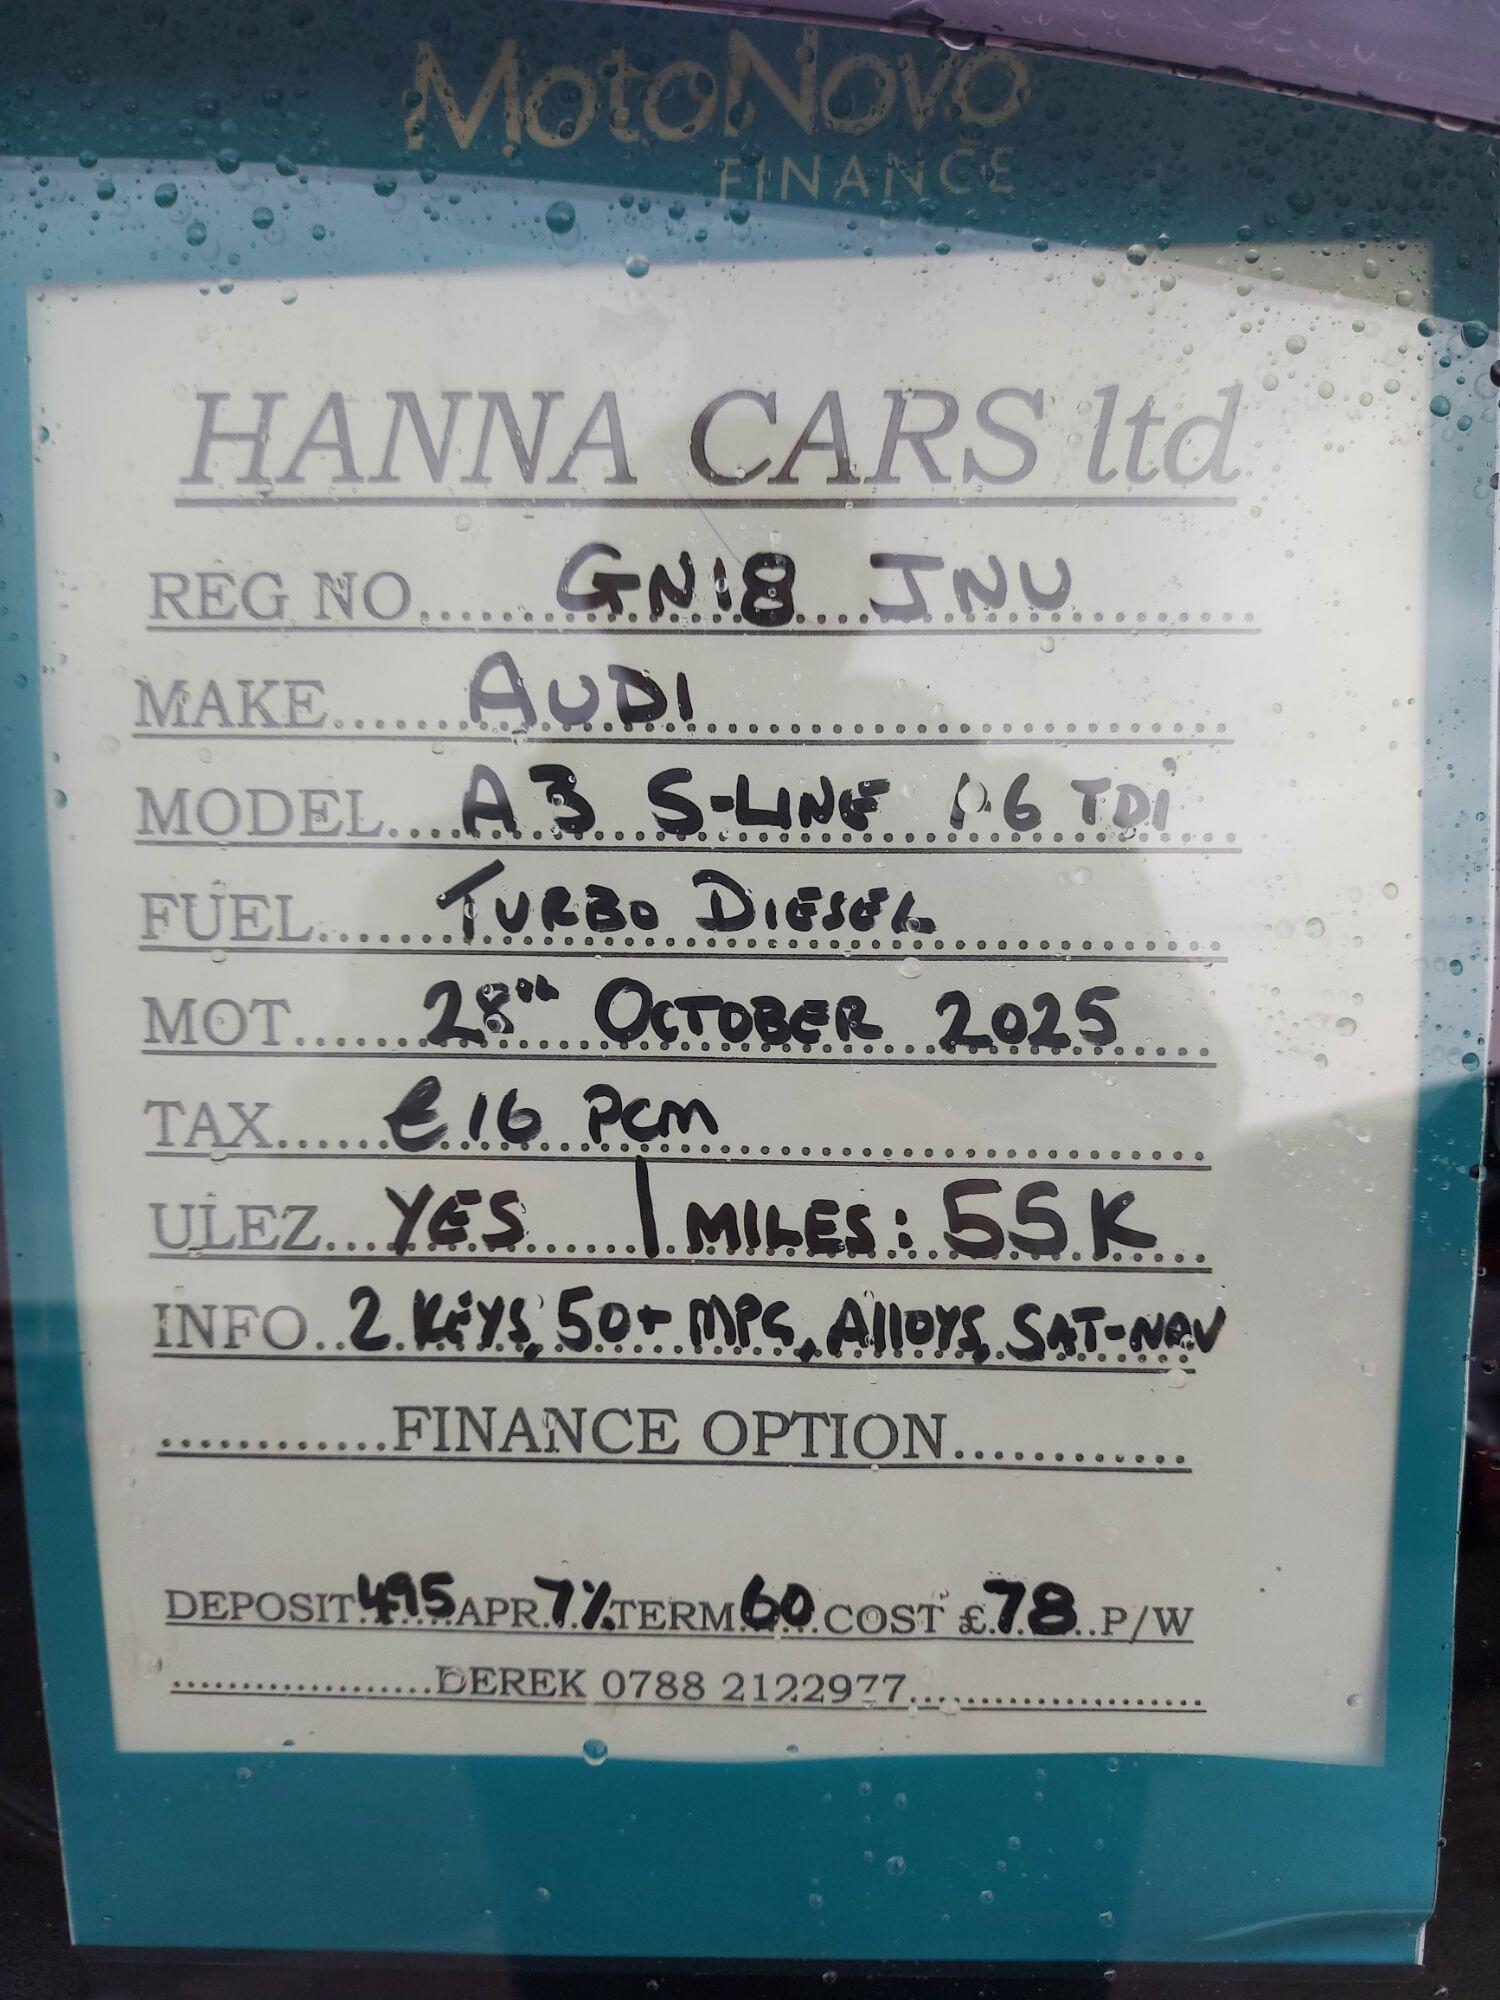 MotoNovo
FINANCE
HANNA CARS ltd
REG NO.......GN18 JNU
MAKE......AUDI
MODEL....A3 S-LINE 1.6 TDi
FUEL......TURBO DIESEL
MOT......28th OCTOBER 2025
TAX......£16 PCM
ULEZ...YES | MILES: 55K
INFO..2 KEYS, 50+ MPG, AllOYS, SAT-NAV
............FINANCE OPTION............
DEPOSIT.495...APR.7%.TERM.60...COST £.78..P/W
..................DEREK 0788 2122977....................